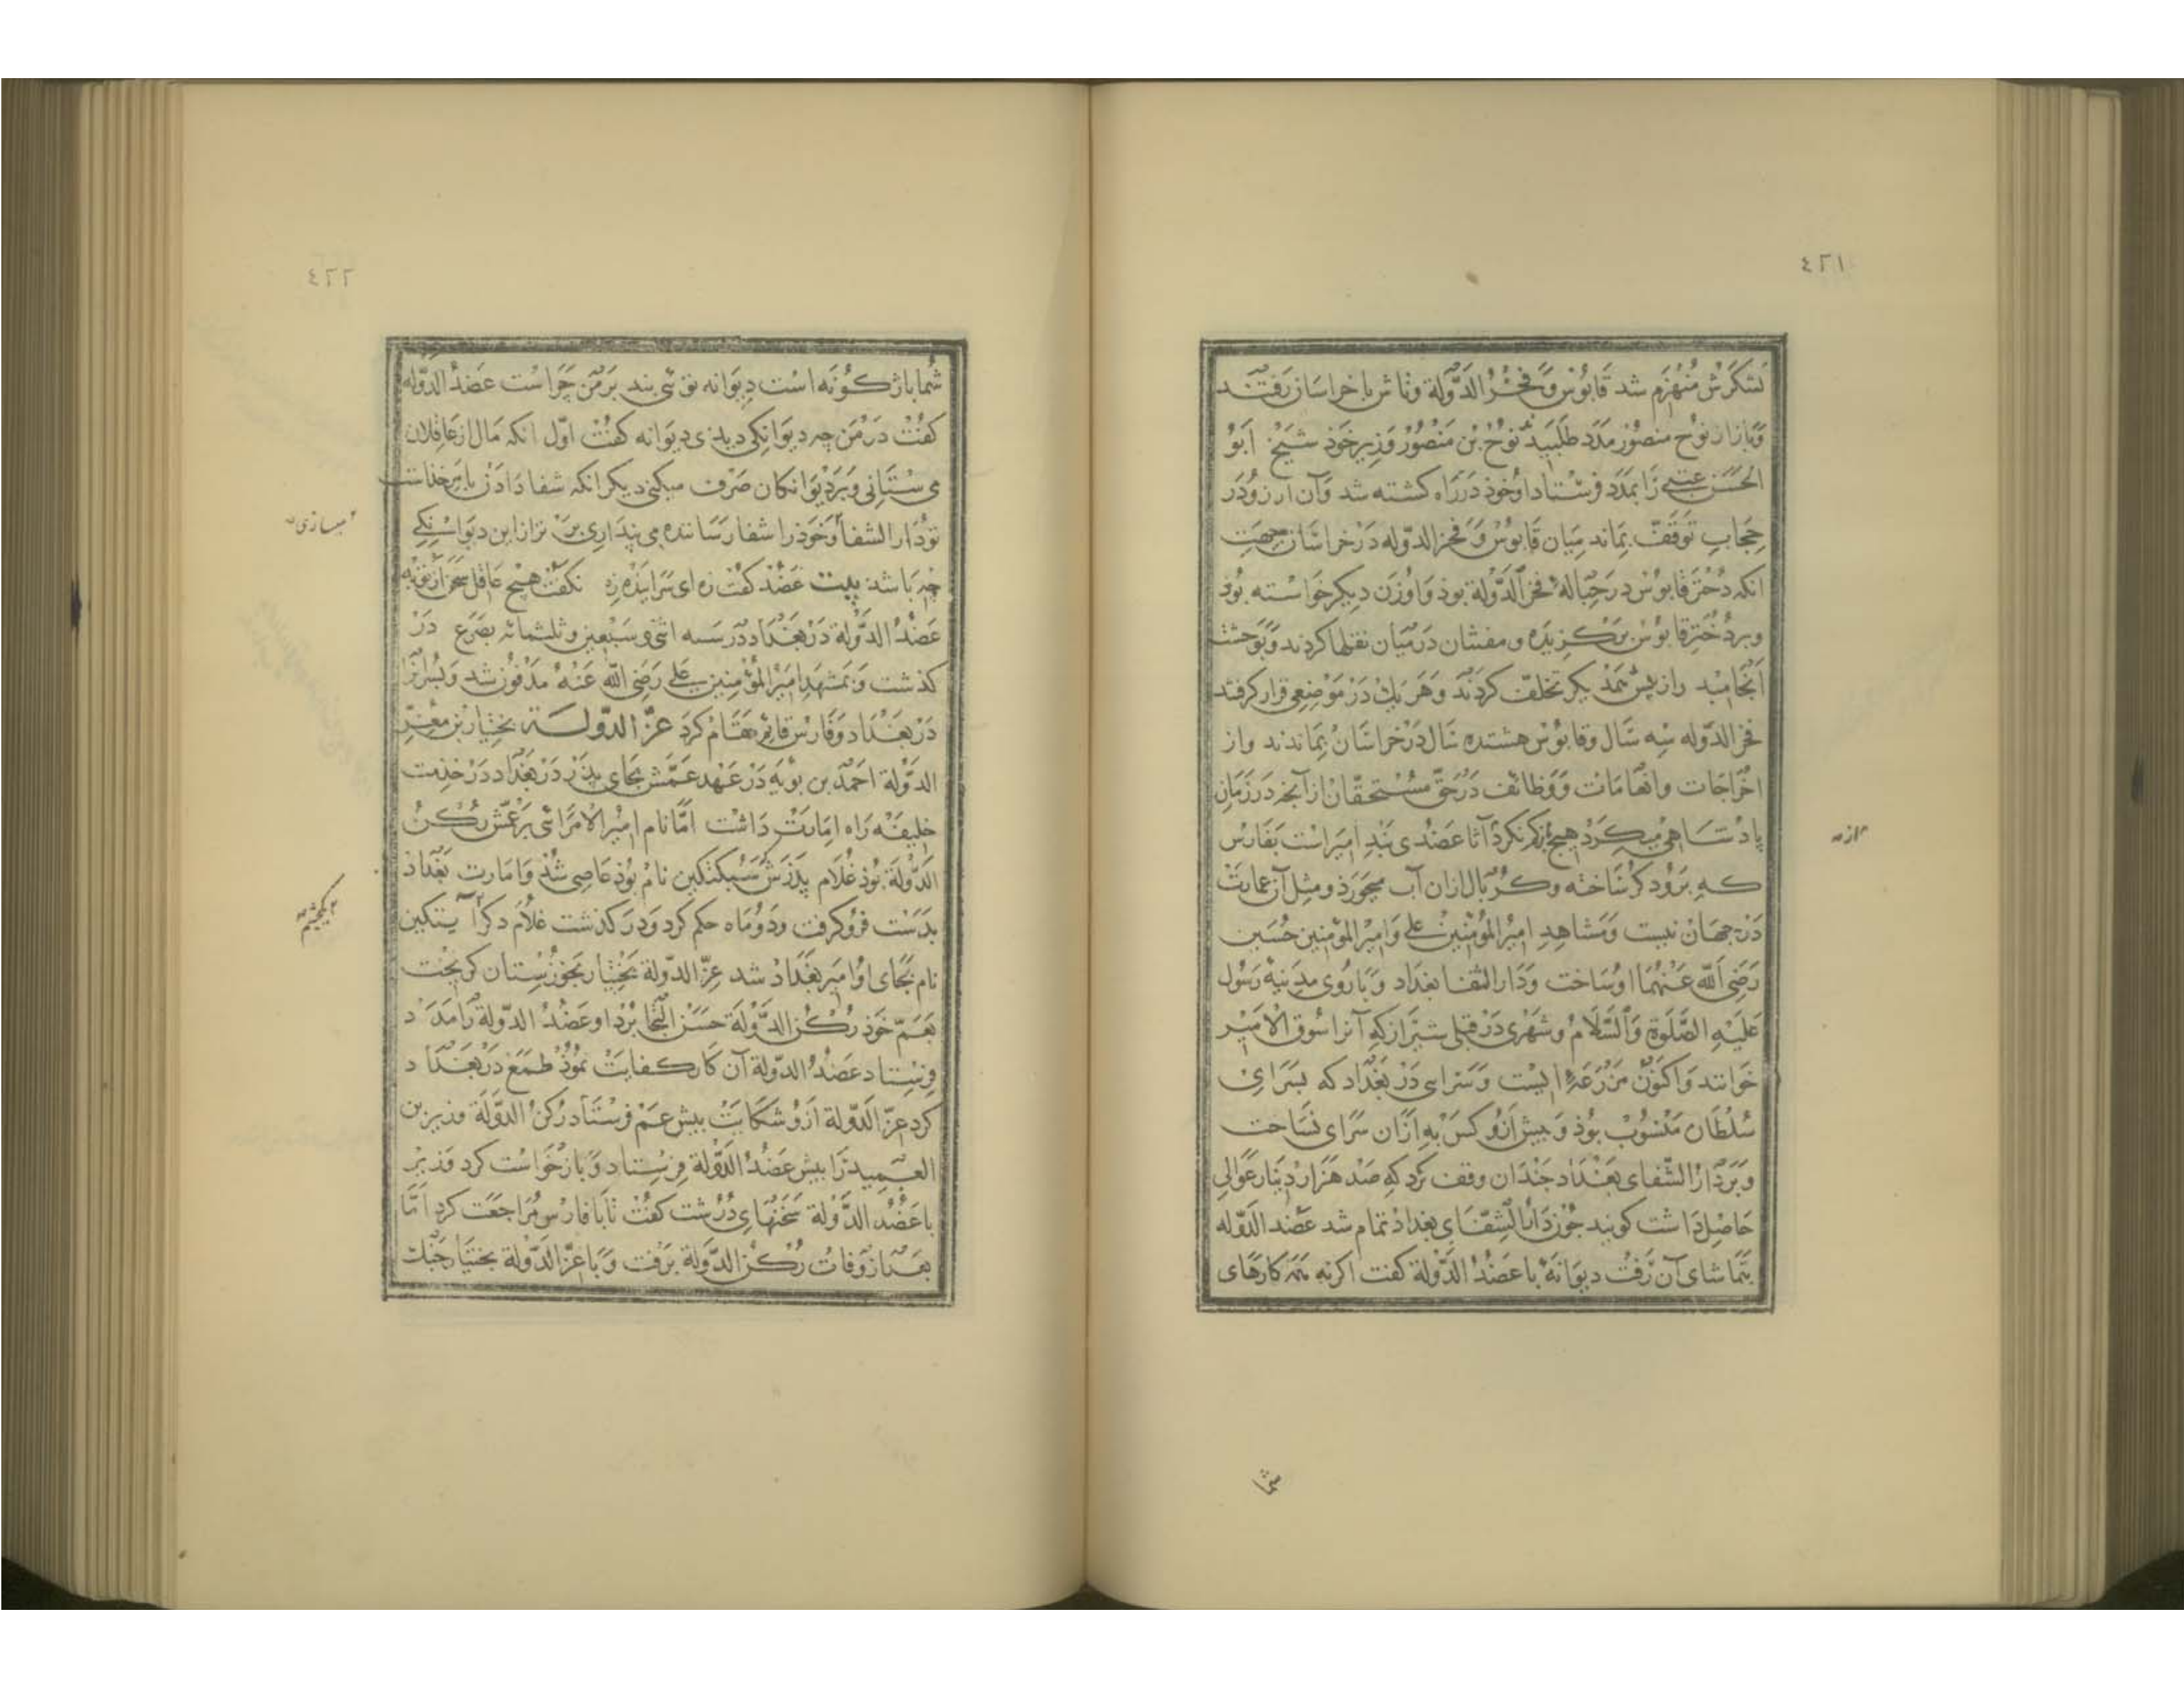 ٤٢١
لشکرش منهزم شد قابوس و فخر الدولة و تاش با خراسان رفتند
و باز از نوح منصور مدد طلبید نوح بن منصور وزیر خود شیخ ابو
الحسن عتبی را بمدد فرستاد او خود در راه کشته شد و آن ارزو در
حجاب توقف بماند میان قابوس و فخر الدوله در خراسان جهت
انکه دختر قابوس در حبالهٔ فخر الدولة بوذ و او زن دیکر خواسته بوذ
و بر دختر قابوس برکزیده و مفتنان در میان نقلها کردند و بوحشت
انجامید و از بیش همدیکر تخلف کردند و هر یك در موضعی قرار کرفتند
فخر الدوله سه سال و قابوس هشتده سال در خراسان بماندند و از
اخراجات و انعامات و وظائف در حق مستحقان از آنجه در زمان
پادشاهی میکرد هیچ باز کم نکرد آثار عضدی بند امیر است بفارس
که برود کر ساخته و کربال ازان آب میخورذ و مثل آن عمارت
در جهان نیست و مشاهد امیر المؤمنین علی و امیر المؤمنین حسین
رضی الله عنهما او ساخت و دار الشفا بغداد و باروی مدینهٔ رسول
علیه الصلوة و السلام و شهری در قبلی شیراز که آنرا سوق الامیر
خوانند و اکنون مزرعهٔ ایست و سرایی در بغداد که بسرای
سلطان منسوب بوذ و بیش ازو کس به ازان سرای نساخت
و بر دار الشفای بغداد جندان وقف کرد که صد هزار دینار عوالی
حاصل داشت کویند جون دار الشفای بغداد تمام شد عضد الدوله
بتماشای آن رفت دیوانهٔ با عضد الدولة کفت اکر نه همه کارهای
ازم
شما
٤٢٢
شما باژکونه است دیوانه تو ئی بند بر من جراست عضد الدوله
کفت در من جه دیوانکی دیدی دیوانه کفت اول انکه مال از عاقلان
می ستانی و بر دیوانکان صرف میکنی دیکر انکه شفا دادن بامر خداست
تو دار الشفا و خود را شفا رساننده می پنداری برتر از این دیوانکی
جه باشد بیت عضد کفت زه ای سراینده زه نکفت هیچ عاقل سخن از تو به
عضد الدولة در بغداد در سنه اثنی و سبعین و ثلثمائه بصرع در
کذشت و بمشهد امیر المؤمنین علی رضی الله عنه مدفون شد و پسرانرا
در بغداد و فارس قائم مقام کرد عز الدولة بختیار بن معز
الدولة احمد بن بویه در عهد عمش بجای پدر در بغداد در خدمت
خلیفه راه امارت داشت اما نام امیر الامرائی بر عمش رکن
الدولة بوذ غلام پدرش سبکتکین نام بوذ عاصی شذ و امارت بغداد
بدست فرو کرفت و دو ماه حکم کرد و در کذشت غلام دکر آیتکین
نام بجای او امیر بغداد شد عز الدولة بختیار بخوزستان کریخت
بعم خوذ رکن الدولة حسن التجا برد او عضد الدولة را مدد
فرستاد عضد الدولة آن کار کفایت نموذ طمع در بغداد
کرد عز الدولة ازو شکایت بیش عم فرستاد رکن الدولة وزیر بن
العمید را بیش عضد الدولة فرستاد و باز خواست کرد وزیر
با عضد الدولة سخنهای درشت کفت تا با فارس مراجعت کرد اما
بعد از وفات رکن الدولة برفت و با عز الدولة بختیار جنك
میسازی
بکجشم